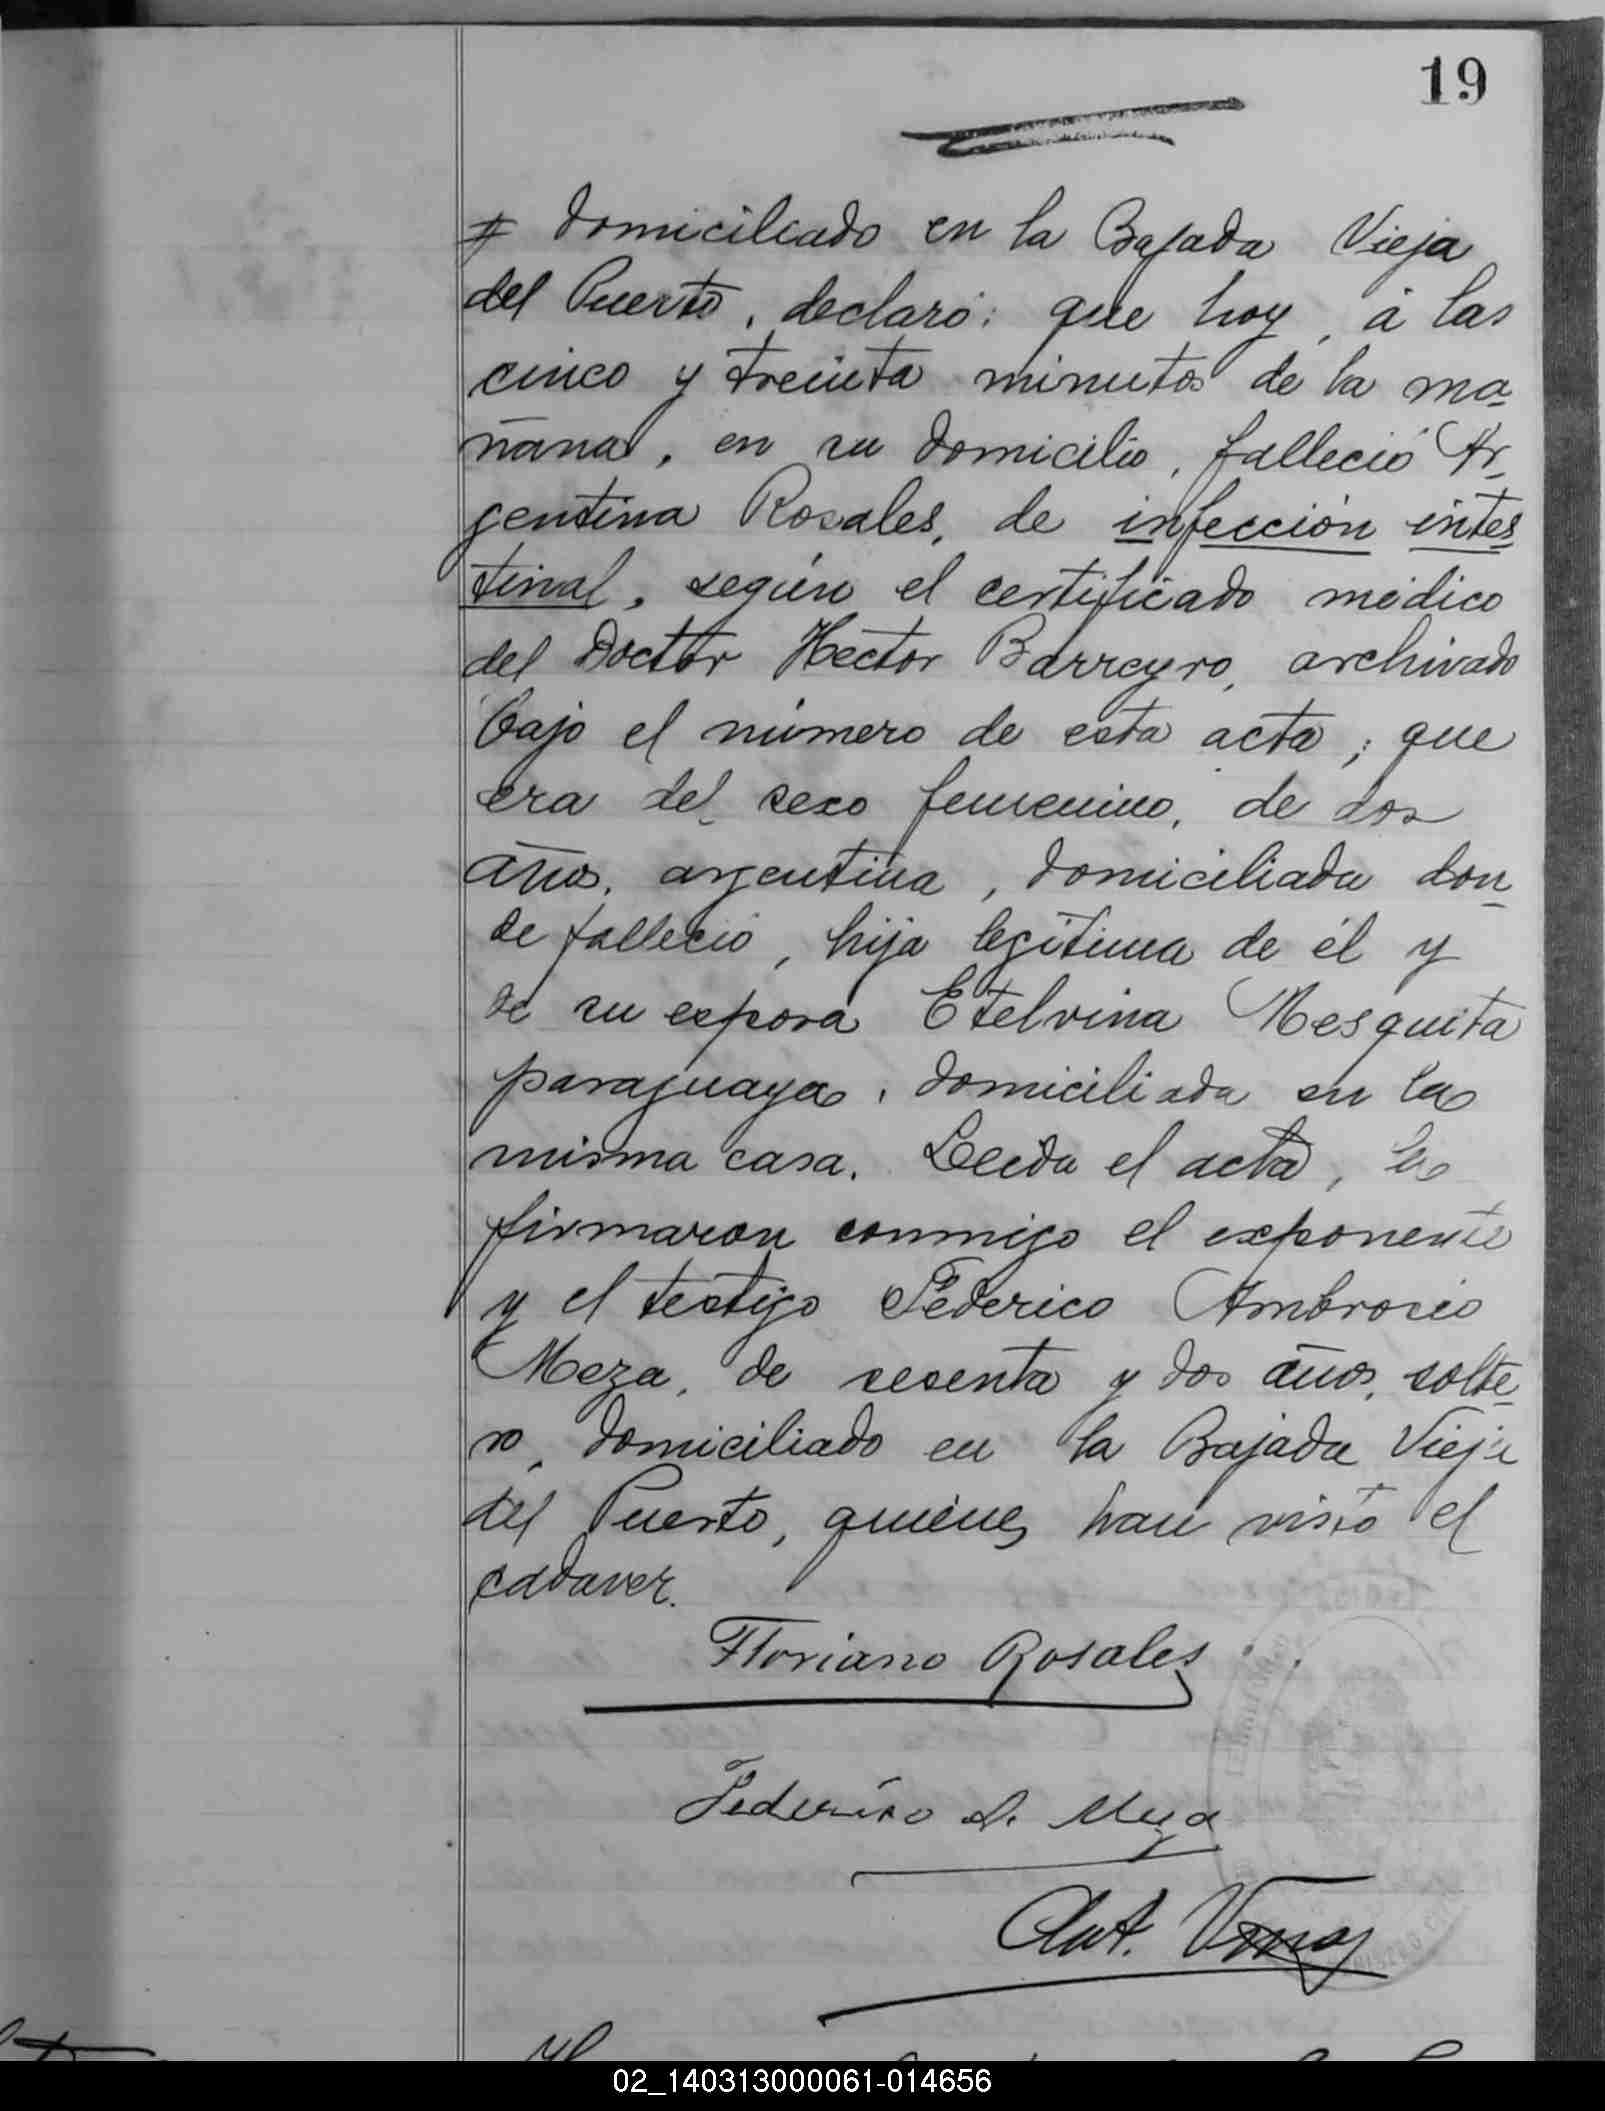 19
# domiciliado en la Bajada Vieja
del Puerto, declaró: que hoy, á las
cinco y treinta minutos de la ma-
ñana, en su domicilio, falleció Ar-
gentina Rosales, de infección intes
tinal, según el certificado médico
del Doctor Hector Barreyro, archivado
bajo el número de esta acta; que
era del sexo femenino, de dos
años, argentina, domiciliada don-
de falleció, hija legítima de él y
de su esposa Etelvina Mesquita
paraguaya, domiciliada en la
misma casa. Leida el acta, la
firmaron conmigo el exponente
y el testigo Federico Ambrosio
Meza, de sesenta y dos años, solte-
ro, domiciliado en la Bajada Vieja
del Puerto, quienes han visto el
cadaver.
Floriano Rosales
Federico A. Meza
Ant.
02_140313000061-014656